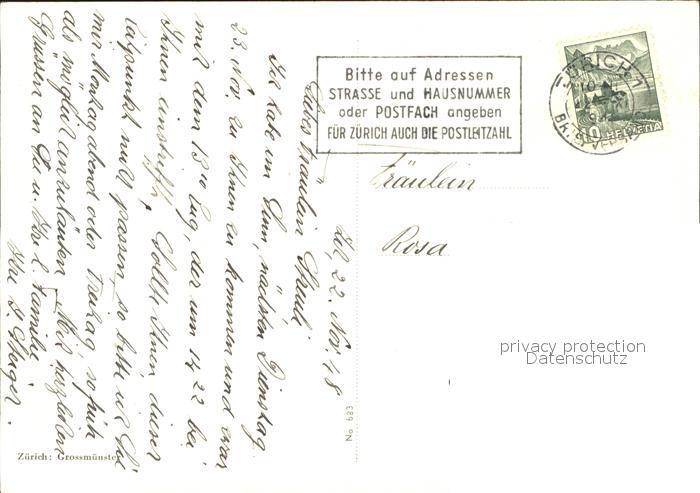 Bitte auf Adressen
STRASSE und HAUSNUMMER
oder POSTFACH angeben
FÜR ZÜRICH AUCH DIE POSTLEITZAHL
ZÜRICH 1
HELVETIA
10
Fräulein
Rosa
privacy protection
Datenschutz
No 683
Zürich: Grossmünster
22. Nov. 48
Liebes Fräulein
Ich habe im Sinn, nächsten Dienstag
23. Nov. zu Ihnen zu kommen und zwar
mit dem 13 Zug, der um 14 22 bei
Ihnen eintrifft. Sollte Ihnen dieser
Zeitpunkt nicht passen, so bitte ich Sie
mir Montagabend oder Freitag so früh
als möglich anzuläuten. Mit herzlichen
Grüssen an Sie u. Ihre l. Familie
Ihre